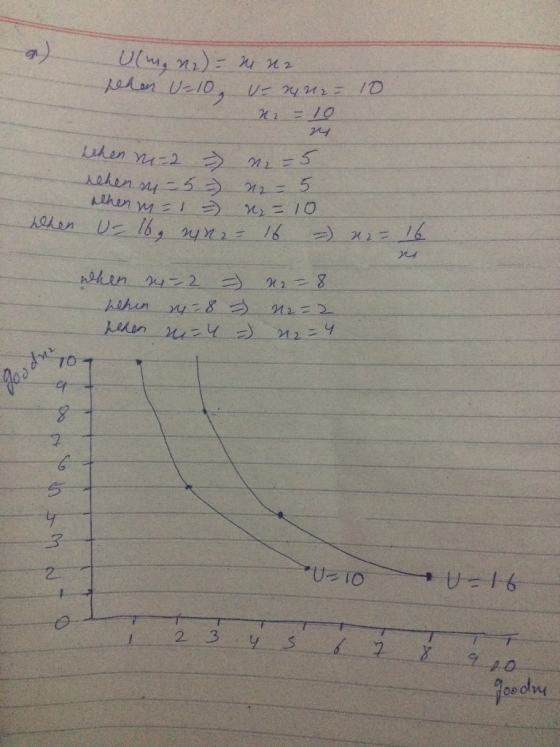 a) U(x₁, x₂) = x₁ x₂
when U=10, U= x₁x₂ = 10
x₂ = 10/x₁
when x₁=2 => x₂ = 5
when x₁=5 => x₂ = 5
when x₁=1 => x₂=10
when U=16, x₁x₂ = 16 => x₂ = 16/x₁
when x₁=2 => x₂=8
when x₁=8 => x₂=2
when x₁=4 => x₂=4
good x₂
10
9
8
7
6
5
4
3
2
1
0
U=10
U=16
1 2 3 4 5 6 7 8 9 10
good x₁